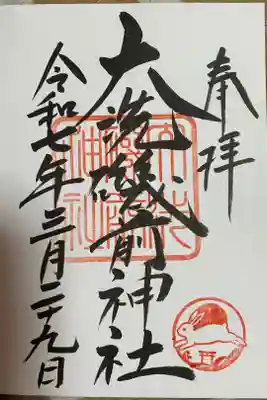 奉拝
大洗磯前神社
令和七年三月二十九日